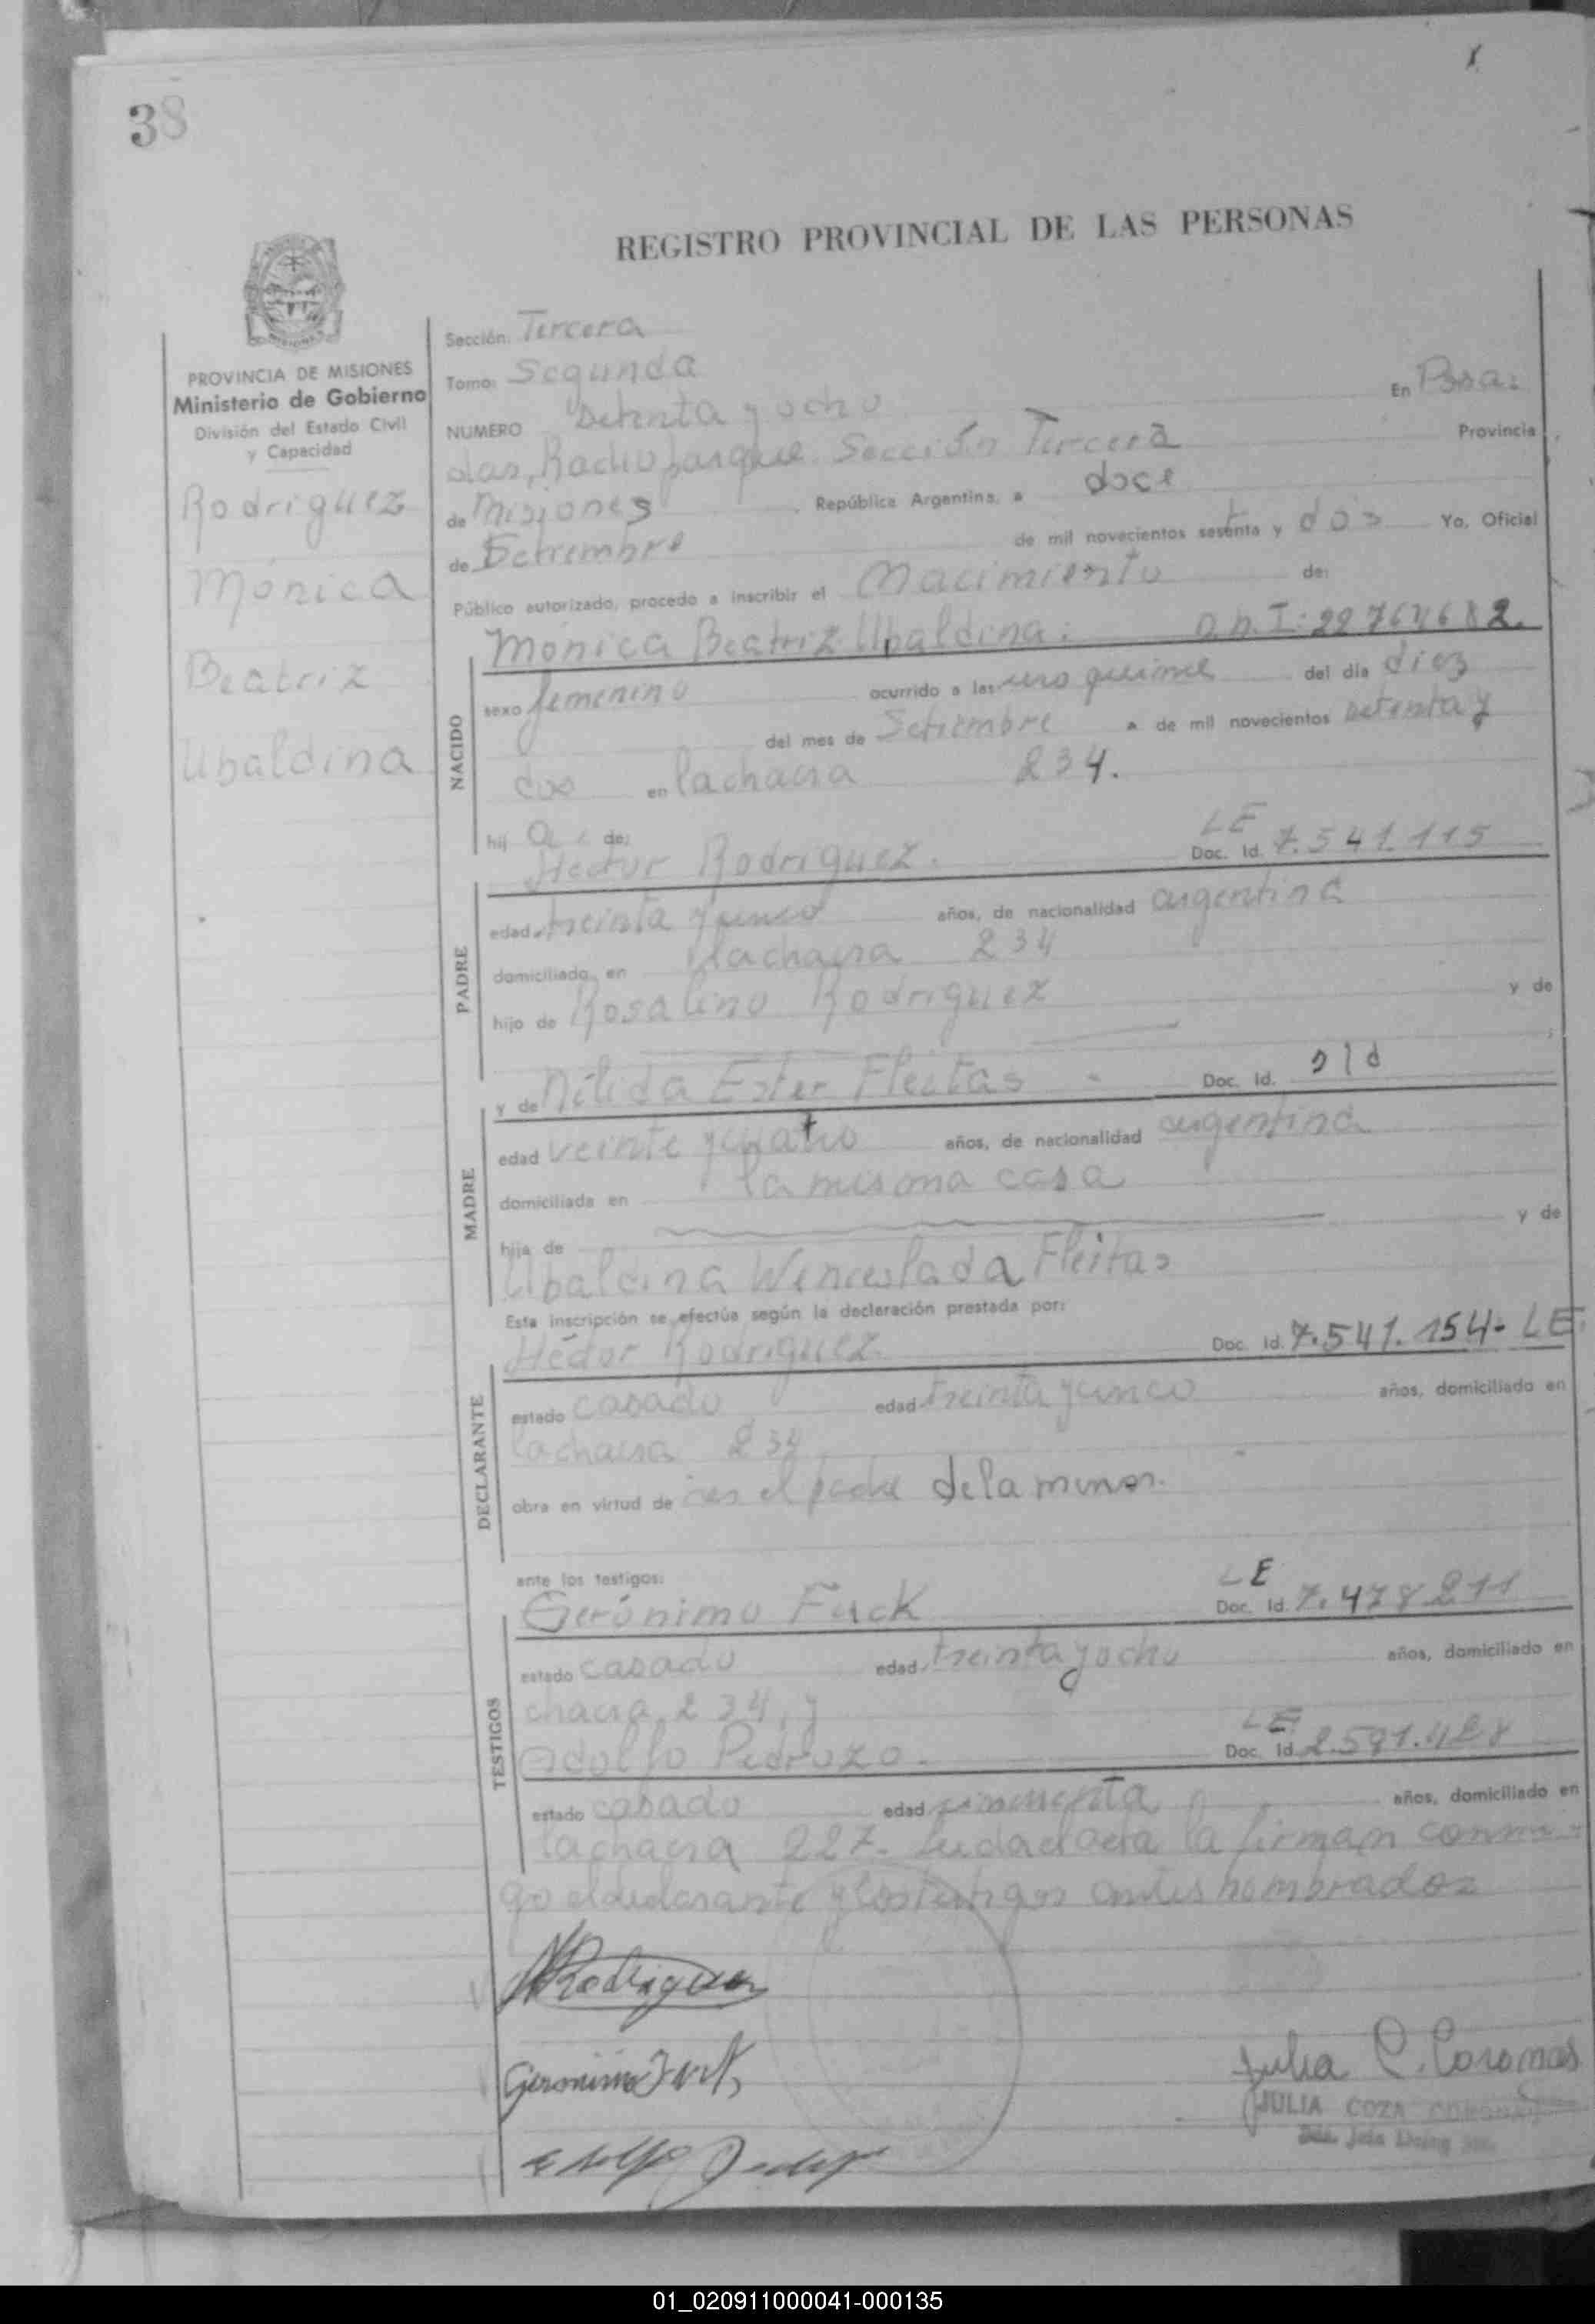 38
REGISTRO PROVINCIAL DE LAS PERSONAS
PROVINCIA DE MISIONES
Ministerio de Gobierno
División del Estado Civil
y Capacidad
Rodriguez
Mónica
Beatriz
Ubaldina
Sección: Tercera
Tomo: Segunda
En Posa-
NUMERO Setenta y ocho
das, Radio parque Sección Tercera Provincia
de Misiones, República Argentina, a doce
de Setiembre de mil novecientos setenta y dos Yo, Oficial
Público autorizado, procedo a inscribir el Nacimiento de:
Mónica Beatriz Ubaldina. D.N.I:
NACIDO
sexo femenino ocurrido a las una quince del día diez
del mes de Setiembre a de mil novecientos setenta y
dos en la chacra 234.
hij a de:
Hector Rodriguez. LE Doc. Id. 7.541.115
PADRE
edad treinta y cinco años, de nacionalidad argentina
domiciliado en la chacra 234
hijo de Rosalino Rodriguez y de
y de Nélida Ester Fleitas Doc. Id.
MADRE
edad veinte y cuatro años, de nacionalidad argentina
domiciliada en la misma casa
hija de y de
Ubaldina Wenceslada Fleitas
Esta inscripción se efectúa según la declaración prestada por:
Héctor Rodriguez. Doc. Id. 7.541.154- LE
DECLARANTE
estado casado edad treinta y cinco años, domiciliado en
la chacra 234
obra en virtud de ser el padre de la menor.
ante los testigos:
Gerónimo Fuck LE Doc. Id. 7.478.211
TESTIGOS
estado casado edad treinta y ocho años, domiciliado en
chacra 234, y
Adolfo Pedrozo. LE Doc. Id. 2.591.428
estado casado edad cincuenta años, domiciliado en
la chacra 227. Leida el acta la firman conmi-
go el declarante y los testigos antes nombrados
Rodriguez
Geronimo
Julia C. Coronas
JULIA COZA
01_020911000041-000135